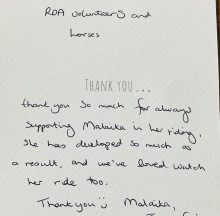 RDA volunteers and
horses
THANK YOU...
thank you so much for always
supporting Malaika in her riding,
she has developed so much as
a result, and we've loved watch
her ride too.
Thank you Malaika,